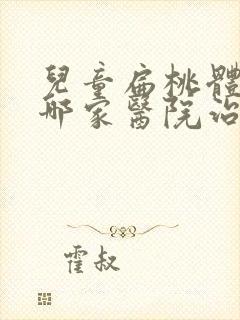 兒童扁桃體
哪家醫院治
霍叔